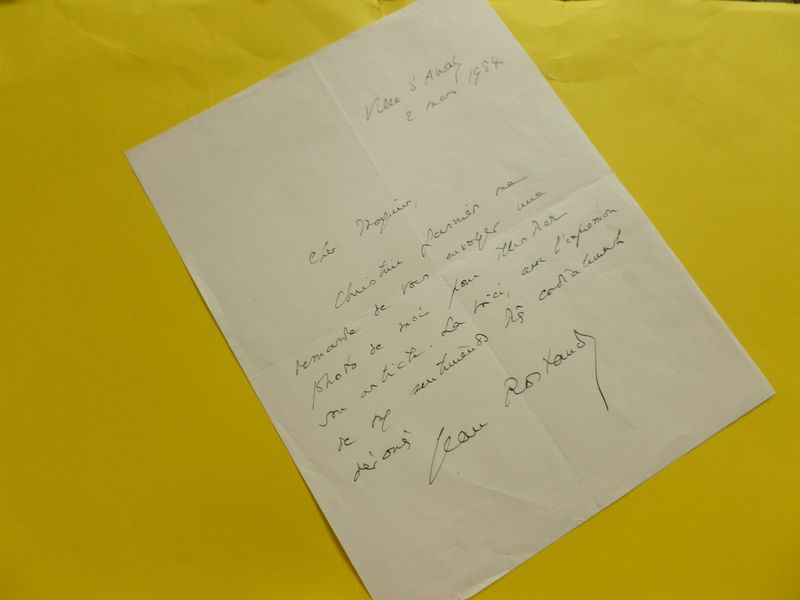 Ville d'Avray
2 mars
Cher Monsieur,
Christine Garnier me
demande de vous envoyer une
photo de moi pour illustrer
son article. La voici, avec l'expression
de mes sentiments très cordialement
dévoués
Jean Rostand